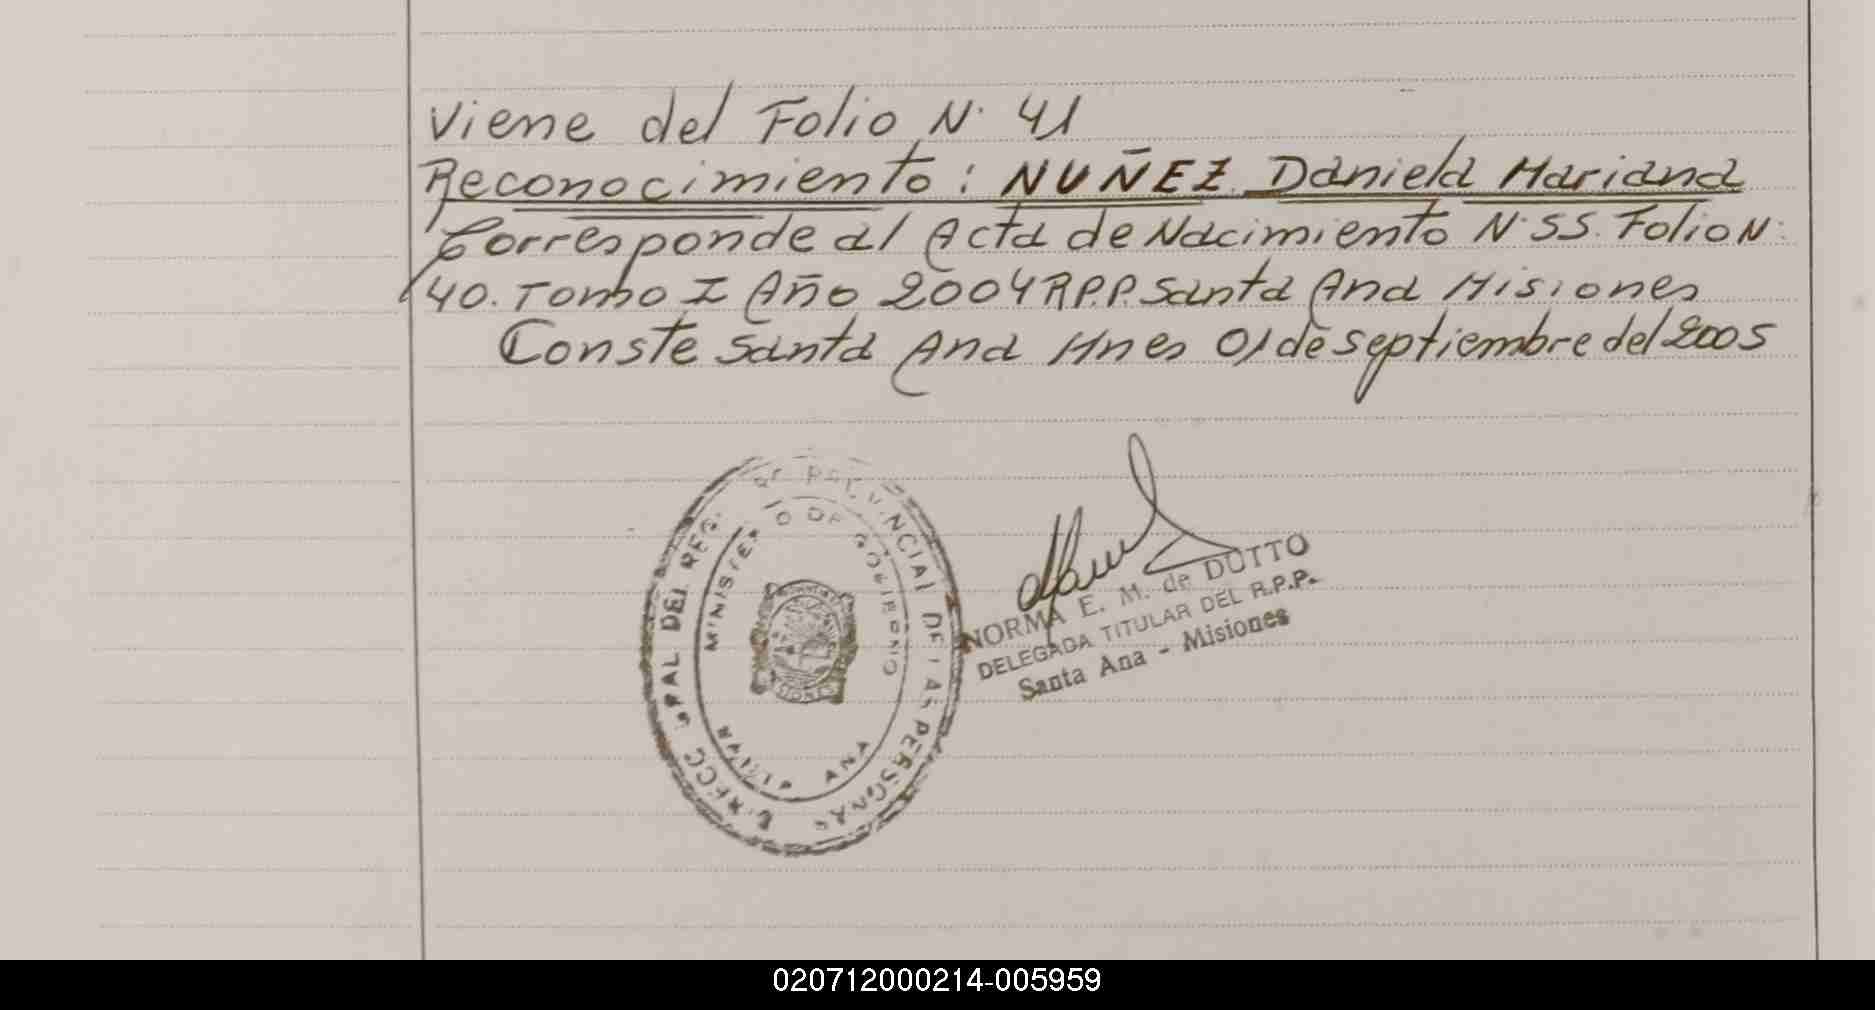 Viene del Folio N. 41
Reconocimiento: NUÑEZ Daniela Mariana
Corresponde al Acta de Nacimiento N. 55. Folio N.
40. Tomo I Año 2004 R.P.P. Santa Ana Misiones
Conste Santa Ana Mnes 01 de septiembre del 2005
PAL DEL REG. PROVINCIAL DE LAS PERSONAS
MINISTERIO DE GOBIERNO
ANA
NORMA E. M. de DUTTO
DELEGADA TITULAR DEL R.P.P.
Santa Ana - Misiones
020712000214-005959